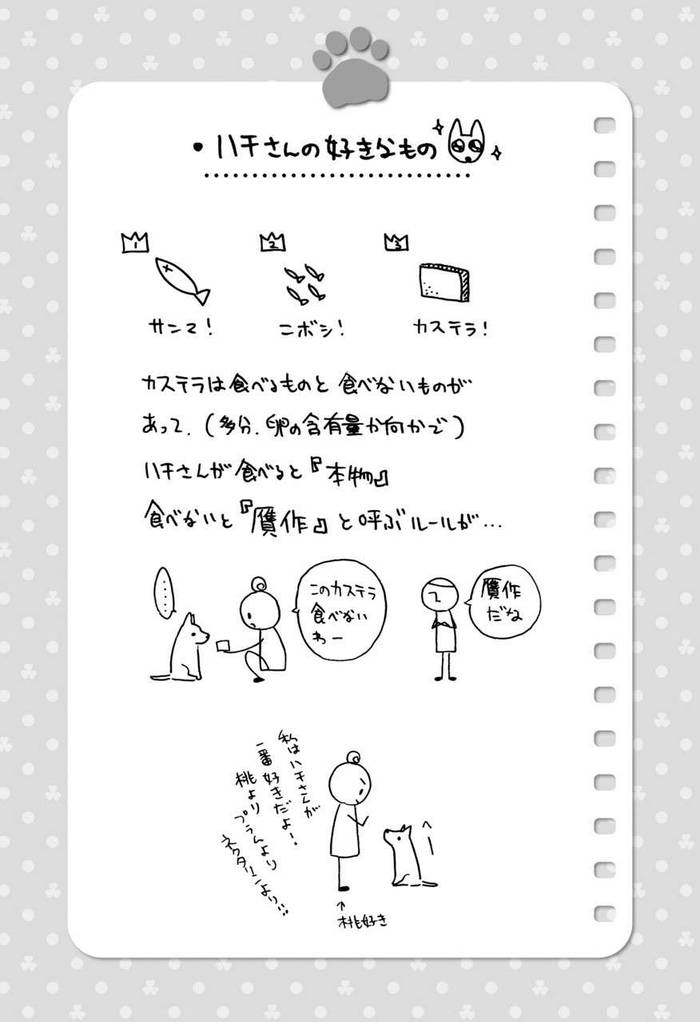 ・ハチさんの好きなもの
1
2
3
サンマ!
ニボシ!
カステラ!
カステラは食べるものと食べないものが
あって、(多分、卵の含有量か何かで)
ハチさんが食べると『本物』
食べないと『贋作』と呼ぶルールが…
……
このカステラ
食べない
わー
贋作
だね
私はハチさんが
一番好きだよ!
桃よりプラムより
ネクタリンより!!
へー
↑
桃好き